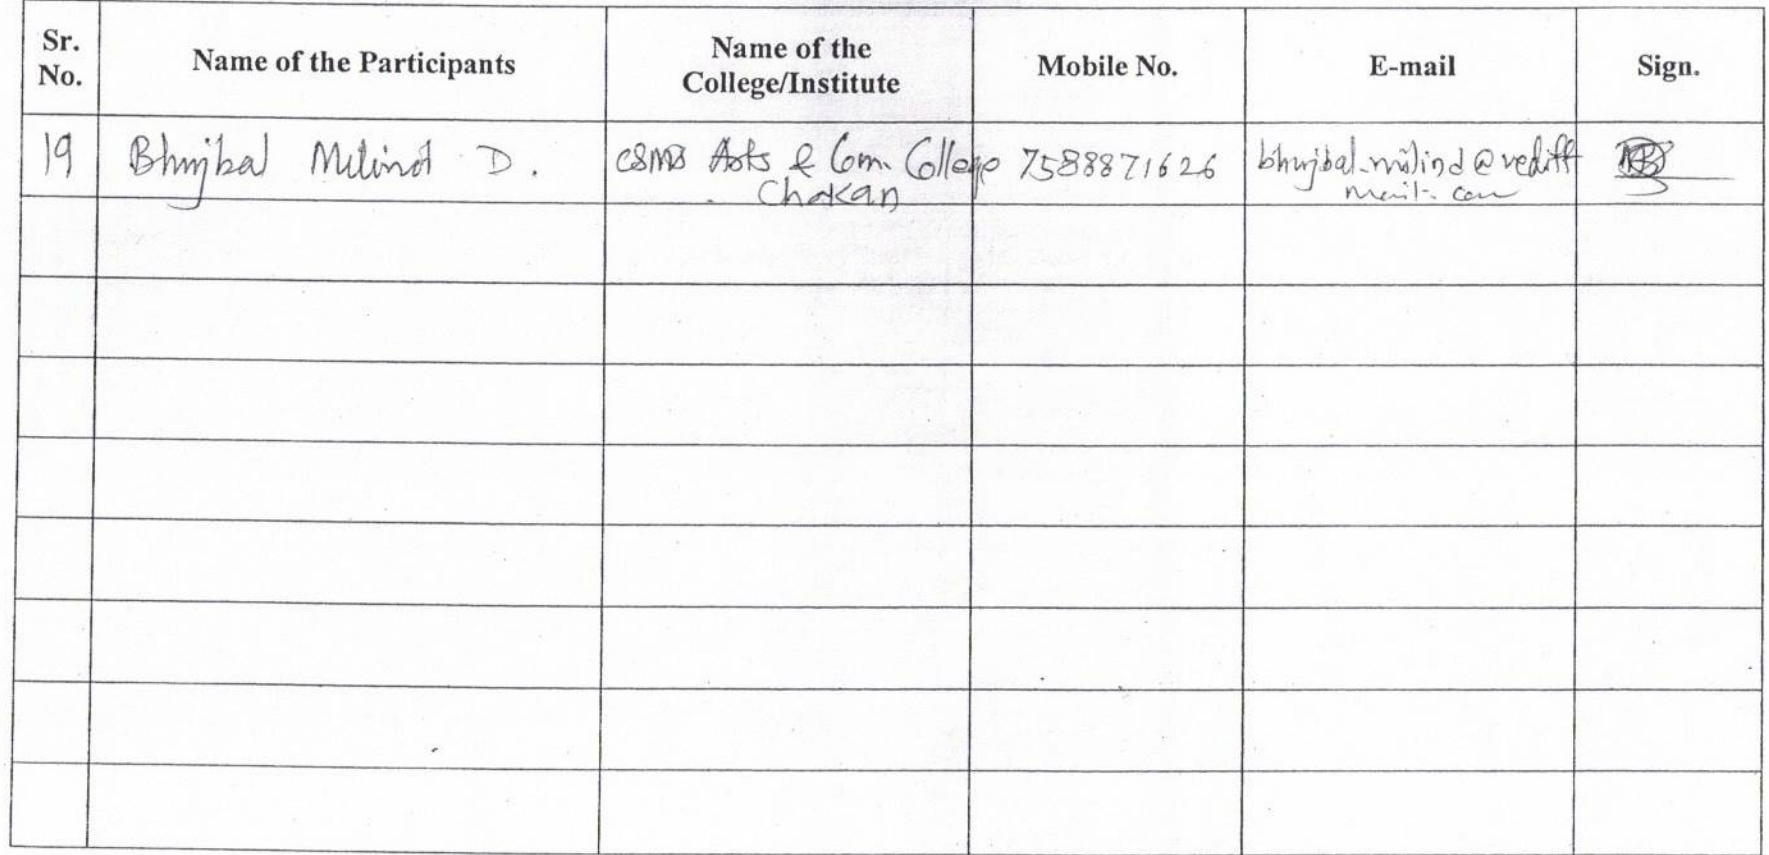 Sr. No. Name of the Participants Name of the College/Institute Mobile No. E-mail Sign.
19 Bhujbal Milind D. CSMB Arts & Com. College Chakan 7588871626 bhujbal_milind@rediffmail.com